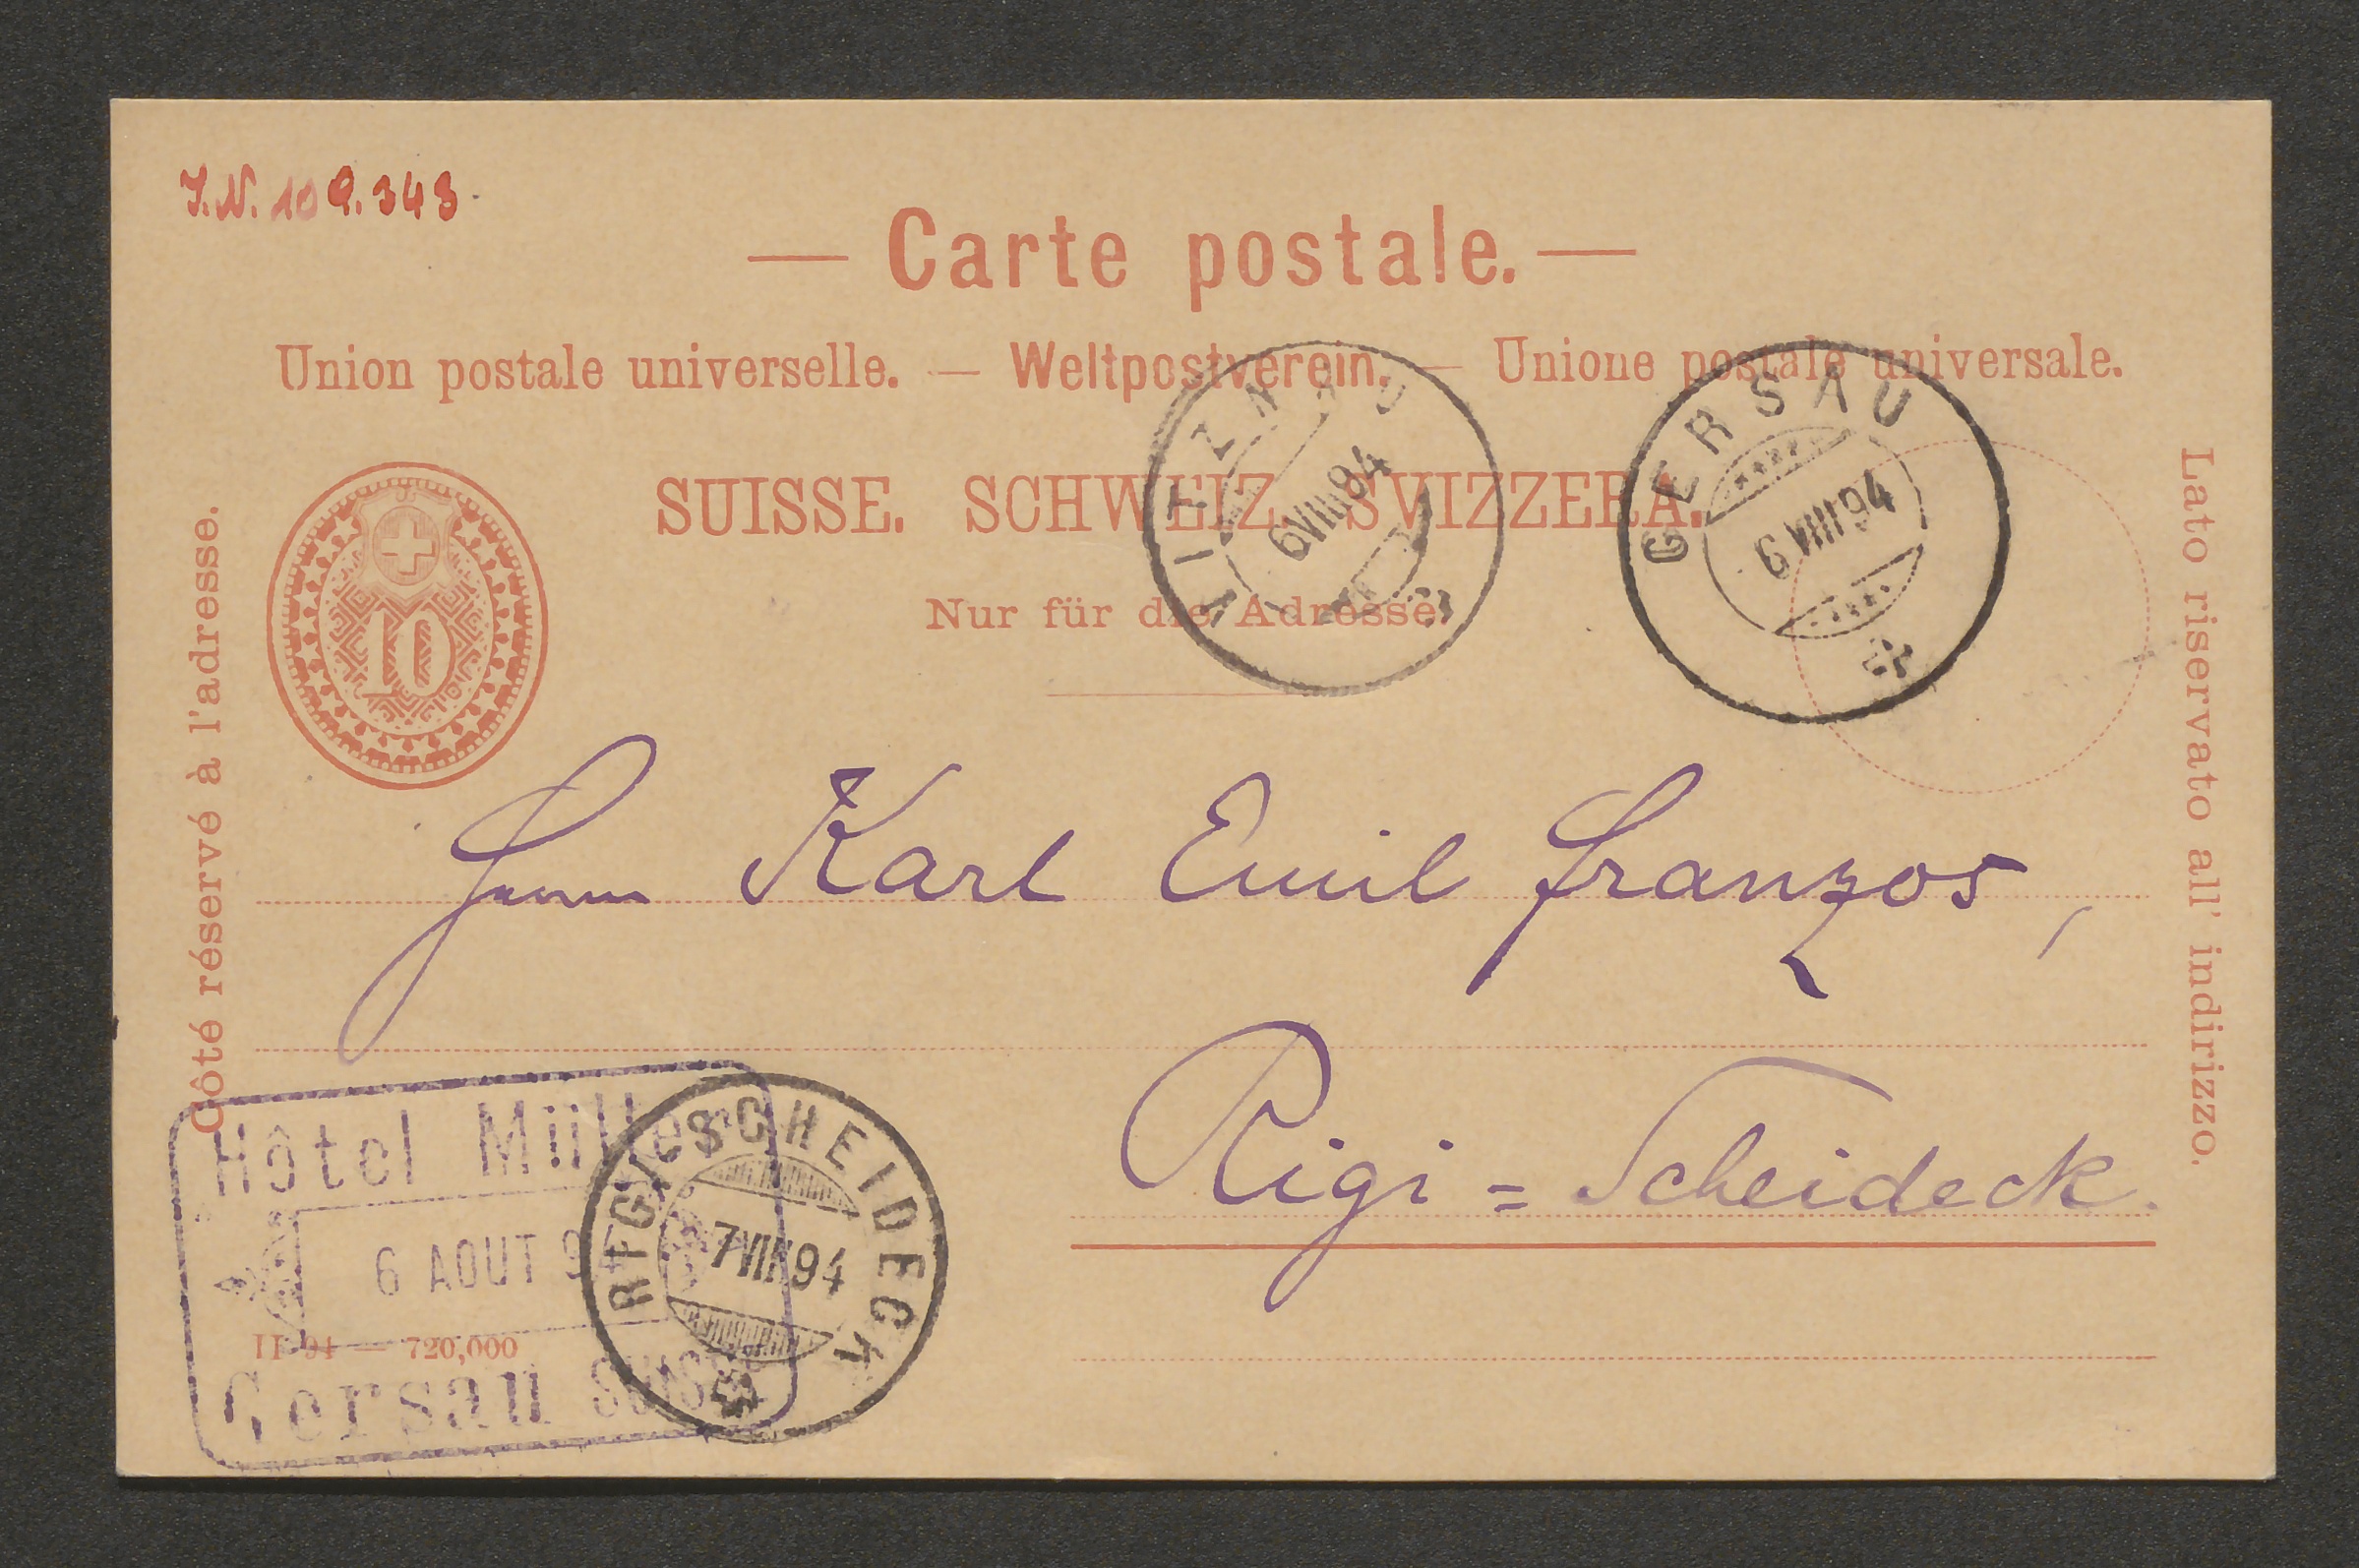 J.N. 109.343
— Carte postale. —
Union postale universelle. — Weltpostverein. — Unione postale universale.
SUISSE. SCHWEIZ. SVIZZERA.
Nur für die Adresse.
Côté réservé à l'adresse.
Lato riservato all' indirizzo.
10
VITZNAU
6 VIII 94
GERSAU
6 VIII 94
Herrn Karl Emil Franzos,
Rigi = Scheideck.
Hôtel Müller
6 AOUT 94
Gersau SUISSE
RIGI SCHEIDECK
7 VIII 94
II 94 — 720,000